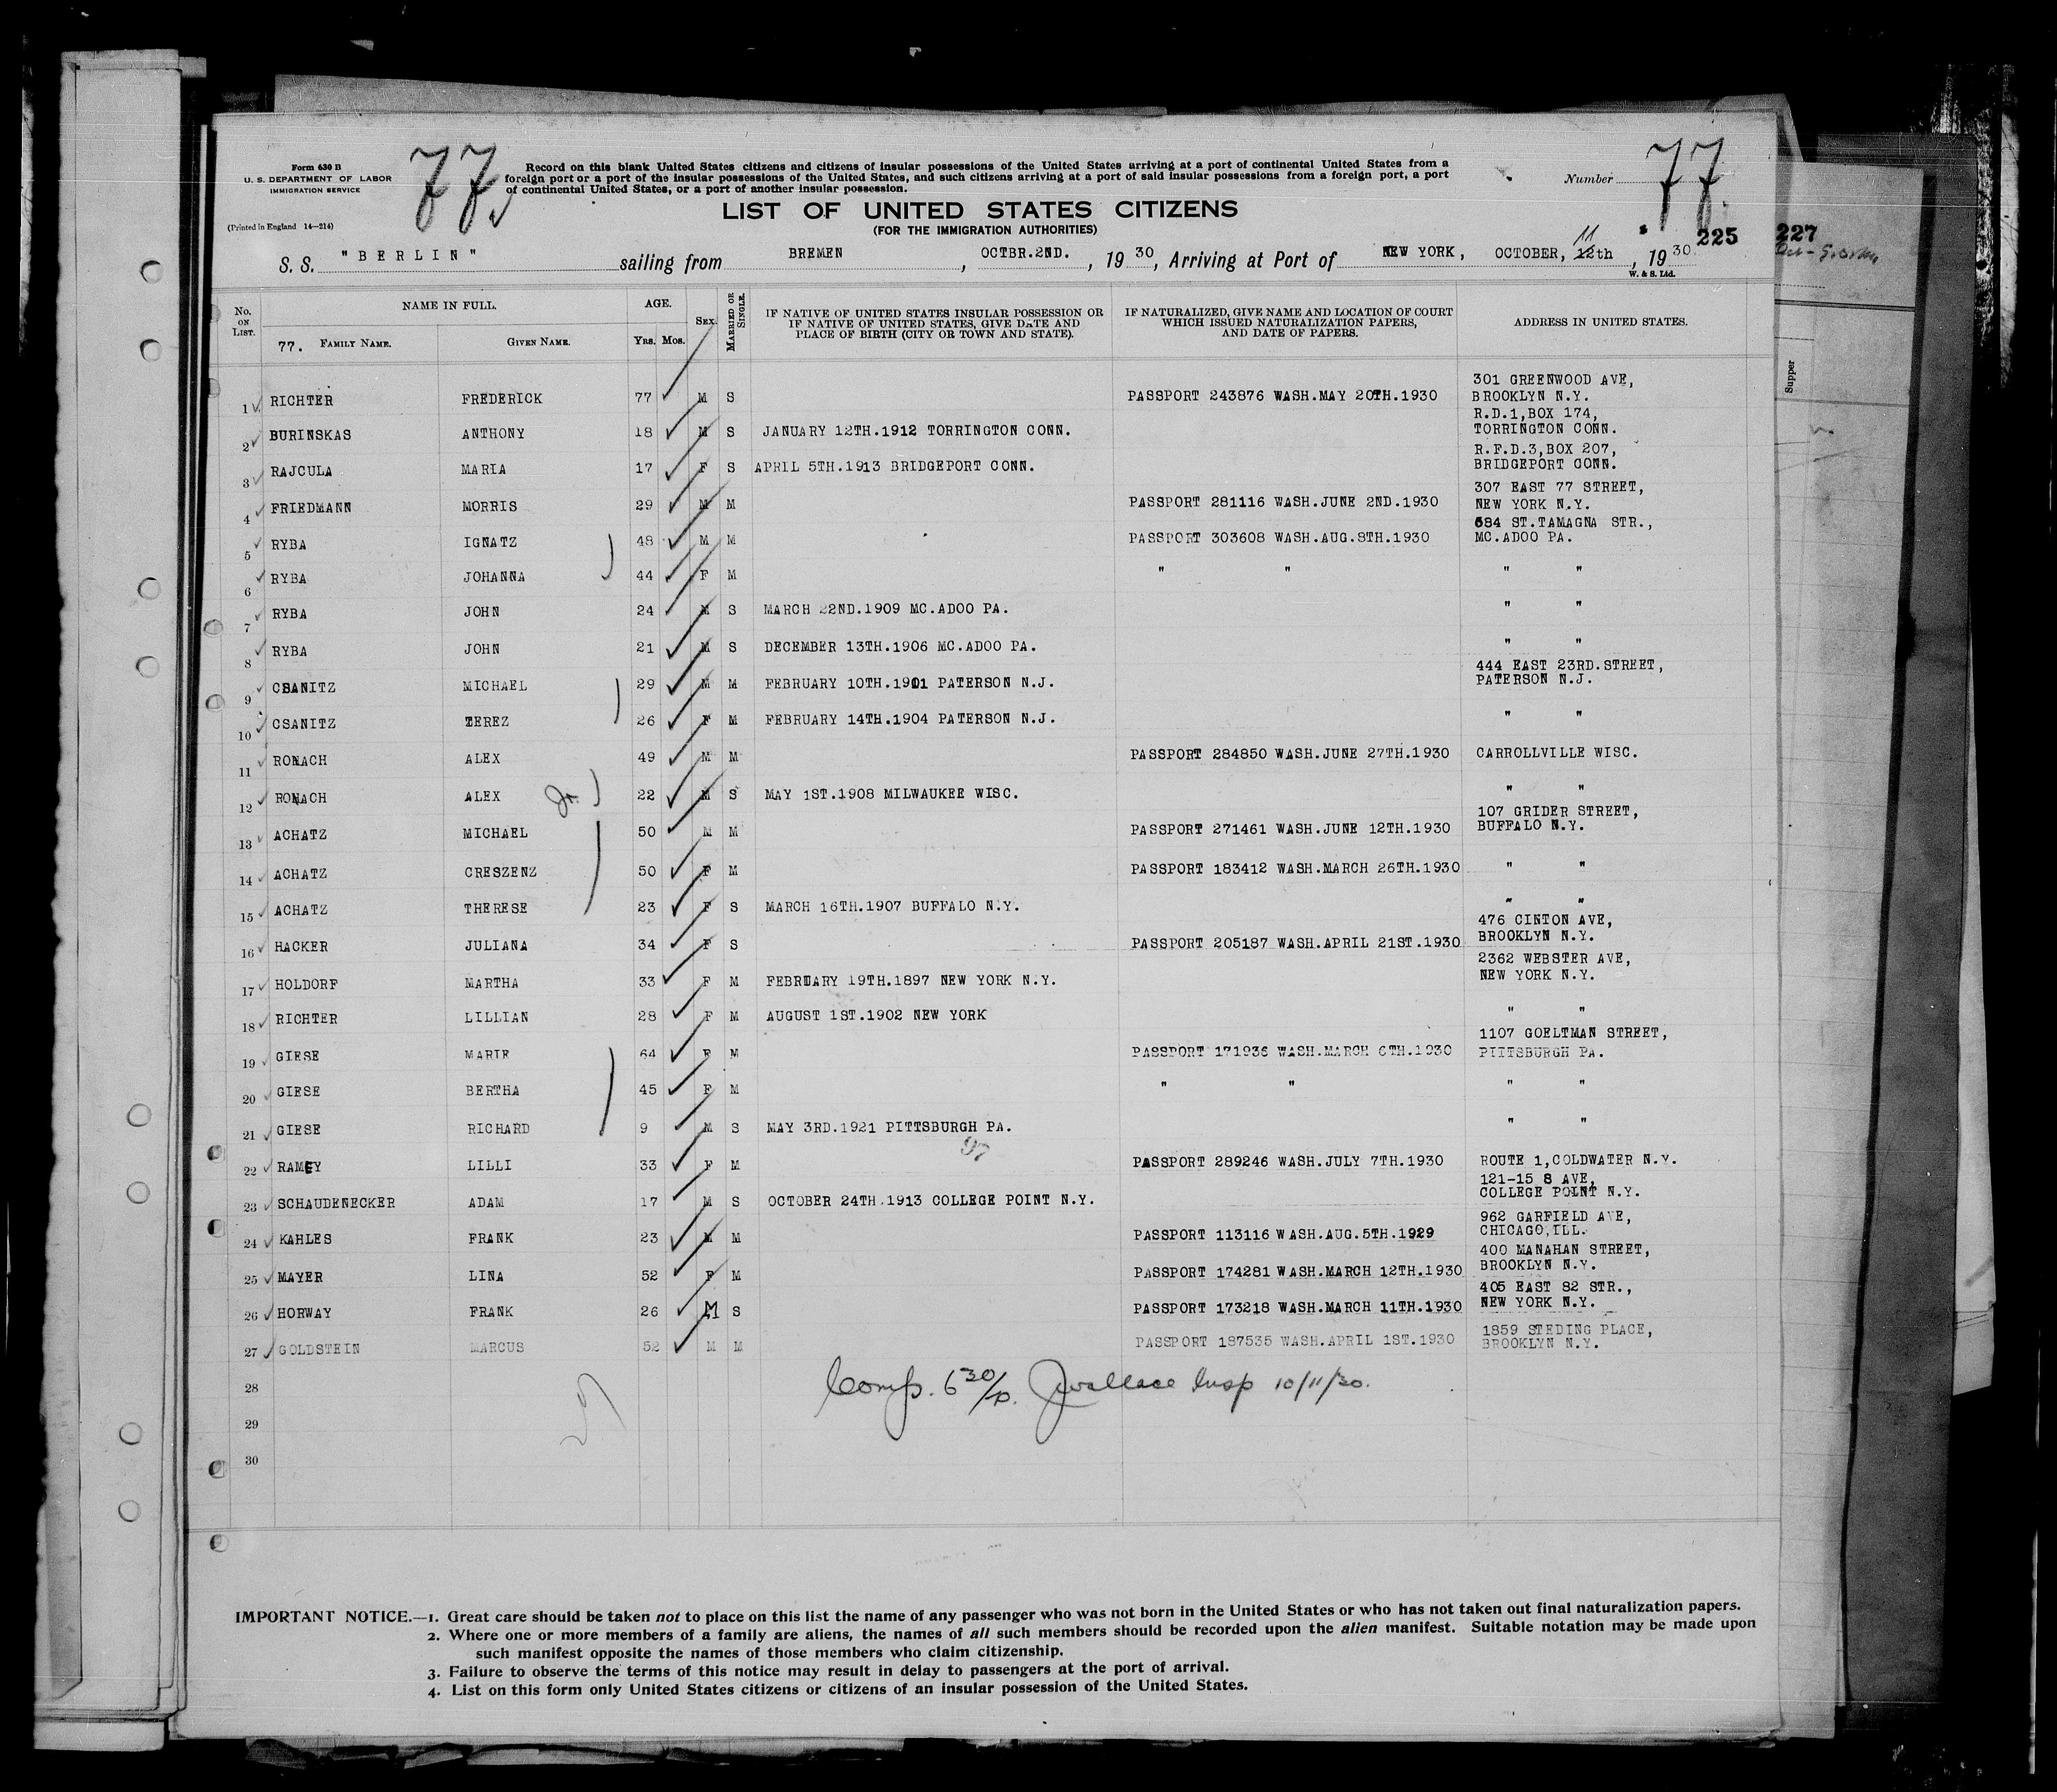 Form 630 B
U. S. DEPARTMENT OF LABOR
IMMIGRATION SERVICE
(Printed in England 14—214)
77
Record on this blank United States citizens and citizens of insular possessions of the United States arriving at a port of continental United States from a
foreign port or a port of the insular possessions of the United States, and such citizens arriving at a port of said insular possessions from a foreign port, a port
of continental United States, or a port of another insular possession.
Number 77.
LIST OF UNITED STATES CITIZENS
(FOR THE IMMIGRATION AUTHORITIES)
225
227
S. S. "BERLIN" sailing from BREMEN, OCTBR.2ND., 1930, Arriving at Port of NEW YORK, OCTOBER, 11 12th, 1930
W. & S. Ltd.
No. ON LIST. NAME IN FULL. AGE. SEX. MARRIED OR SINGLE. IF NATIVE OF UNITED STATES INSULAR POSSESSION OR IF NATIVE OF UNITED STATES, GIVE DATE AND PLACE OF BIRTH (CITY OR TOWN AND STATE). IF NATURALIZED, GIVE NAME AND LOCATION OF COURT WHICH ISSUED NATURALIZATION PAPERS, AND DATE OF PAPERS. ADDRESS IN UNITED STATES.
77. FAMILY NAME. GIVEN NAME. YRS. MOS.
Supper
1 RICHTER FREDERICK 77 M S PASSPORT 243876 WASH.MAY 20TH.1930 301 GREENWOOD AVE, BROOKLYN N.Y.
2 BURINSKAS ANTHONY 18 M S JANUARY 12TH.1912 TORRINGTON CONN. R.D.1,BOX 174, TORRINGTON CONN.
3 RAJCULA MARIA 17 F S APRIL 5TH.1913 BRIDGEPORT CONN. R.F.D.3,BOX 207, BRIDGEPORT CONN.
4 FRIEDMANN MORRIS 29 M M PASSPORT 281116 WASH.JUNE 2ND.1930 307 EAST 77 STREET, NEW YORK N.Y.
5 RYBA IGNATZ 48 M M PASSPORT 303608 WASH.AUG.8TH.1930 684 ST.TAMAGNA STR., MC.ADOO PA.
6 RYBA JOHANNA 44 F M " " " "
7 RYBA JOHN 24 M S MARCH 22ND.1909 MC.ADOO PA. " "
8 RYBA JOHN 21 M S DECEMBER 13TH.1906 MC.ADOO PA. " "
9 CSANITZ MICHAEL 29 M M FEBRUARY 10TH.1901 PATERSON N.J. 444 EAST 23RD.STREET, PATERSON N.J.
10 CSANITZ TEREZ 26 F M FEBRUARY 14TH.1904 PATERSON N.J. " "
11 RONACH ALEX 49 M M PASSPORT 284850 WASH.JUNE 27TH.1930 CARROLLVILLE WISC.
12 RONACH ALEX Jr. 22 M S MAY 1ST.1908 MILWAUKEE WISC. " "
13 ACHATZ MICHAEL 50 M M PASSPORT 271461 WASH.JUNE 12TH.1930 107 GRIDER STREET, BUFFALO N.Y.
14 ACHATZ CRESZENZ 50 F M PASSPORT 183412 WASH.MARCH 26TH.1930 " "
15 ACHATZ THERESE 23 F S MARCH 16TH.1907 BUFFALO N.Y. " "
16 HACKER JULIANA 34 F S PASSPORT 205187 WASH.APRIL 21ST.1930 476 CINTON AVE, BROOKLYN N.Y.
17 HOLDORF MARTHA 33 F M FEBRUARY 19TH.1897 NEW YORK N.Y. 2362 WEBSTER AVE, NEW YORK N.Y.
18 RICHTER LILLIAN 28 F M AUGUST 1ST.1902 NEW YORK " "
19 GIESE MARIE 64 F M PASSPORT 171936 WASH.MARCH 6TH.1930 1107 GOELTMAN STREET, PITTSBURGH PA.
20 GIESE BERTHA 45 F M " " " "
21 GIESE RICHARD 9 M S MAY 3RD.1921 PITTSBURGH PA. " "
22 RAMEY LILLI 33 F M PASSPORT 289246 WASH.JULY 7TH.1930 ROUTE 1,COLDWATER N.Y.
23 SCHAUDENECKER ADAM 17 M S OCTOBER 24TH.1913 COLLEGE POINT N.Y. 121-15 8 AVE, COLLEGE POINT N.Y.
24 KAHLES FRANK 23 M M PASSPORT 113116 WASH.AUG.5TH.1929 962 GARFIELD AVE, CHICAGO,ILL.
25 MAYER LINA 52 F M PASSPORT 174281 WASH.MARCH 12TH.1930 400 MANAHAN STREET, BROOKLYN N.Y.
26 HORWAY FRANK 26 M S PASSPORT 173218 WASH.MARCH 11TH.1930 405 EAST 82 STR., NEW YORK N.Y.
27 GOLDSTEIN MARCUS 52 M M PASSPORT 187535 WASH.APRIL 1ST.1930 1859 STEDING PLACE, BROOKLYN N.Y.
28 Comp. 6 30/p. JWallace Insp 10/11/30.
29
30
IMPORTANT NOTICE.—1. Great care should be taken not to place on this list the name of any passenger who was not born in the United States or who has not taken out final naturalization papers.
2. Where one or more members of a family are aliens, the names of all such members should be recorded upon the alien manifest. Suitable notation may be made upon
such manifest opposite the names of those members who claim citizenship.
3. Failure to observe the terms of this notice may result in delay to passengers at the port of arrival.
4. List on this form only United States citizens or citizens of an insular possession of the United States.